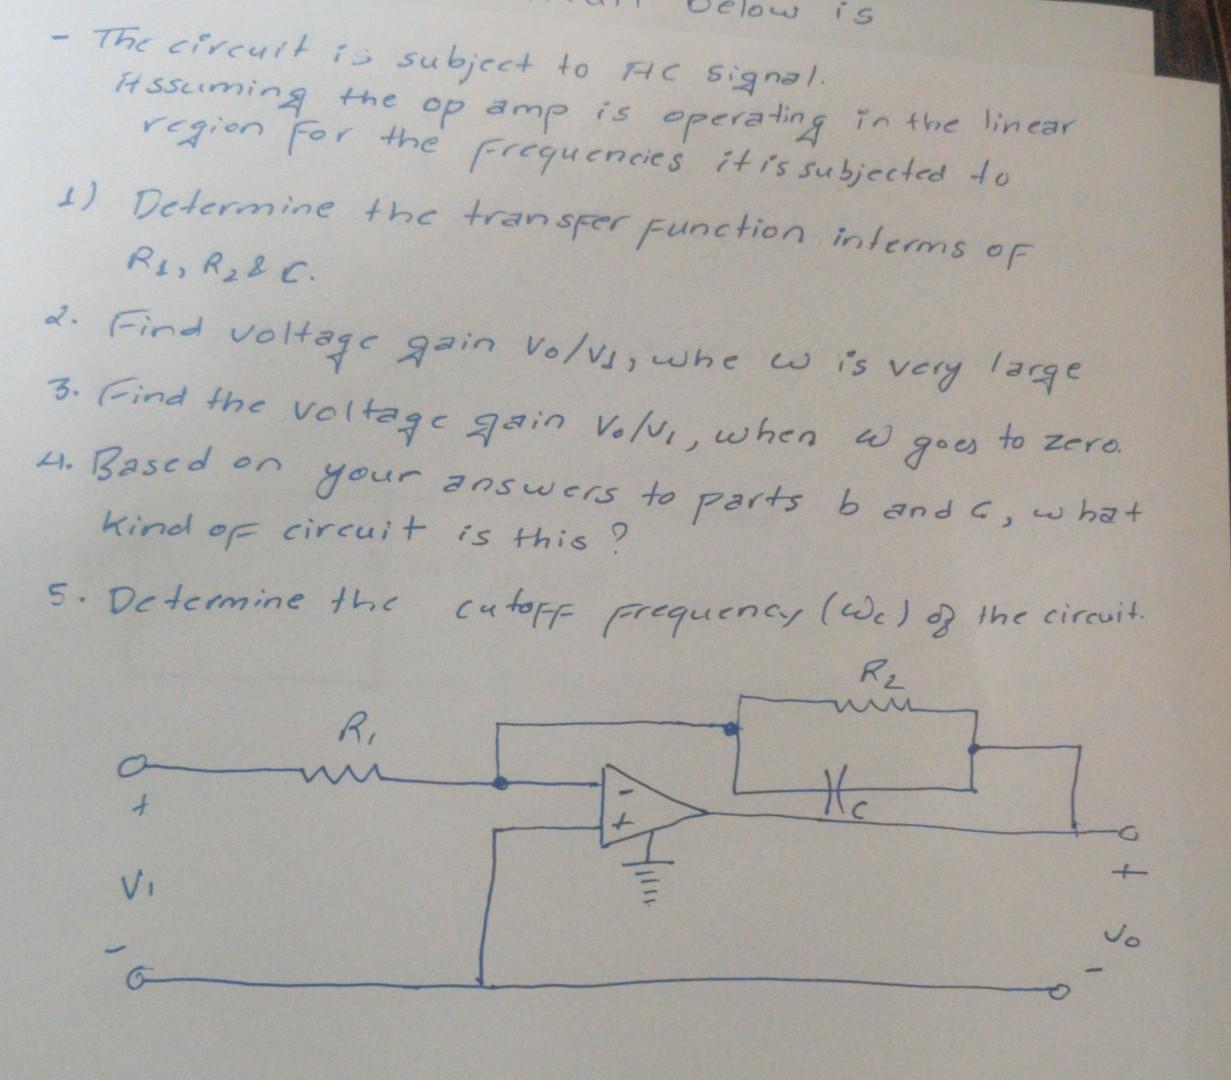 below is
- The circuit is subject to AC signal.
Assuming the op amp is operating in the linear
region for the frequencies it is subjected to
1) Determine the transfer function interms of
R1, R2 & C.
2. Find voltage gain Vo/V1, whe ω is very large
3. Find the voltage gain Vo/V1, when ω goes to zero.
4. Based on your answers to parts b and c, what
kind of circuit is this?
5. Determine the cutoff frequency (ωc) of the circuit.
R2
R1
C
-
+
+
V1
-
+
Vo
-